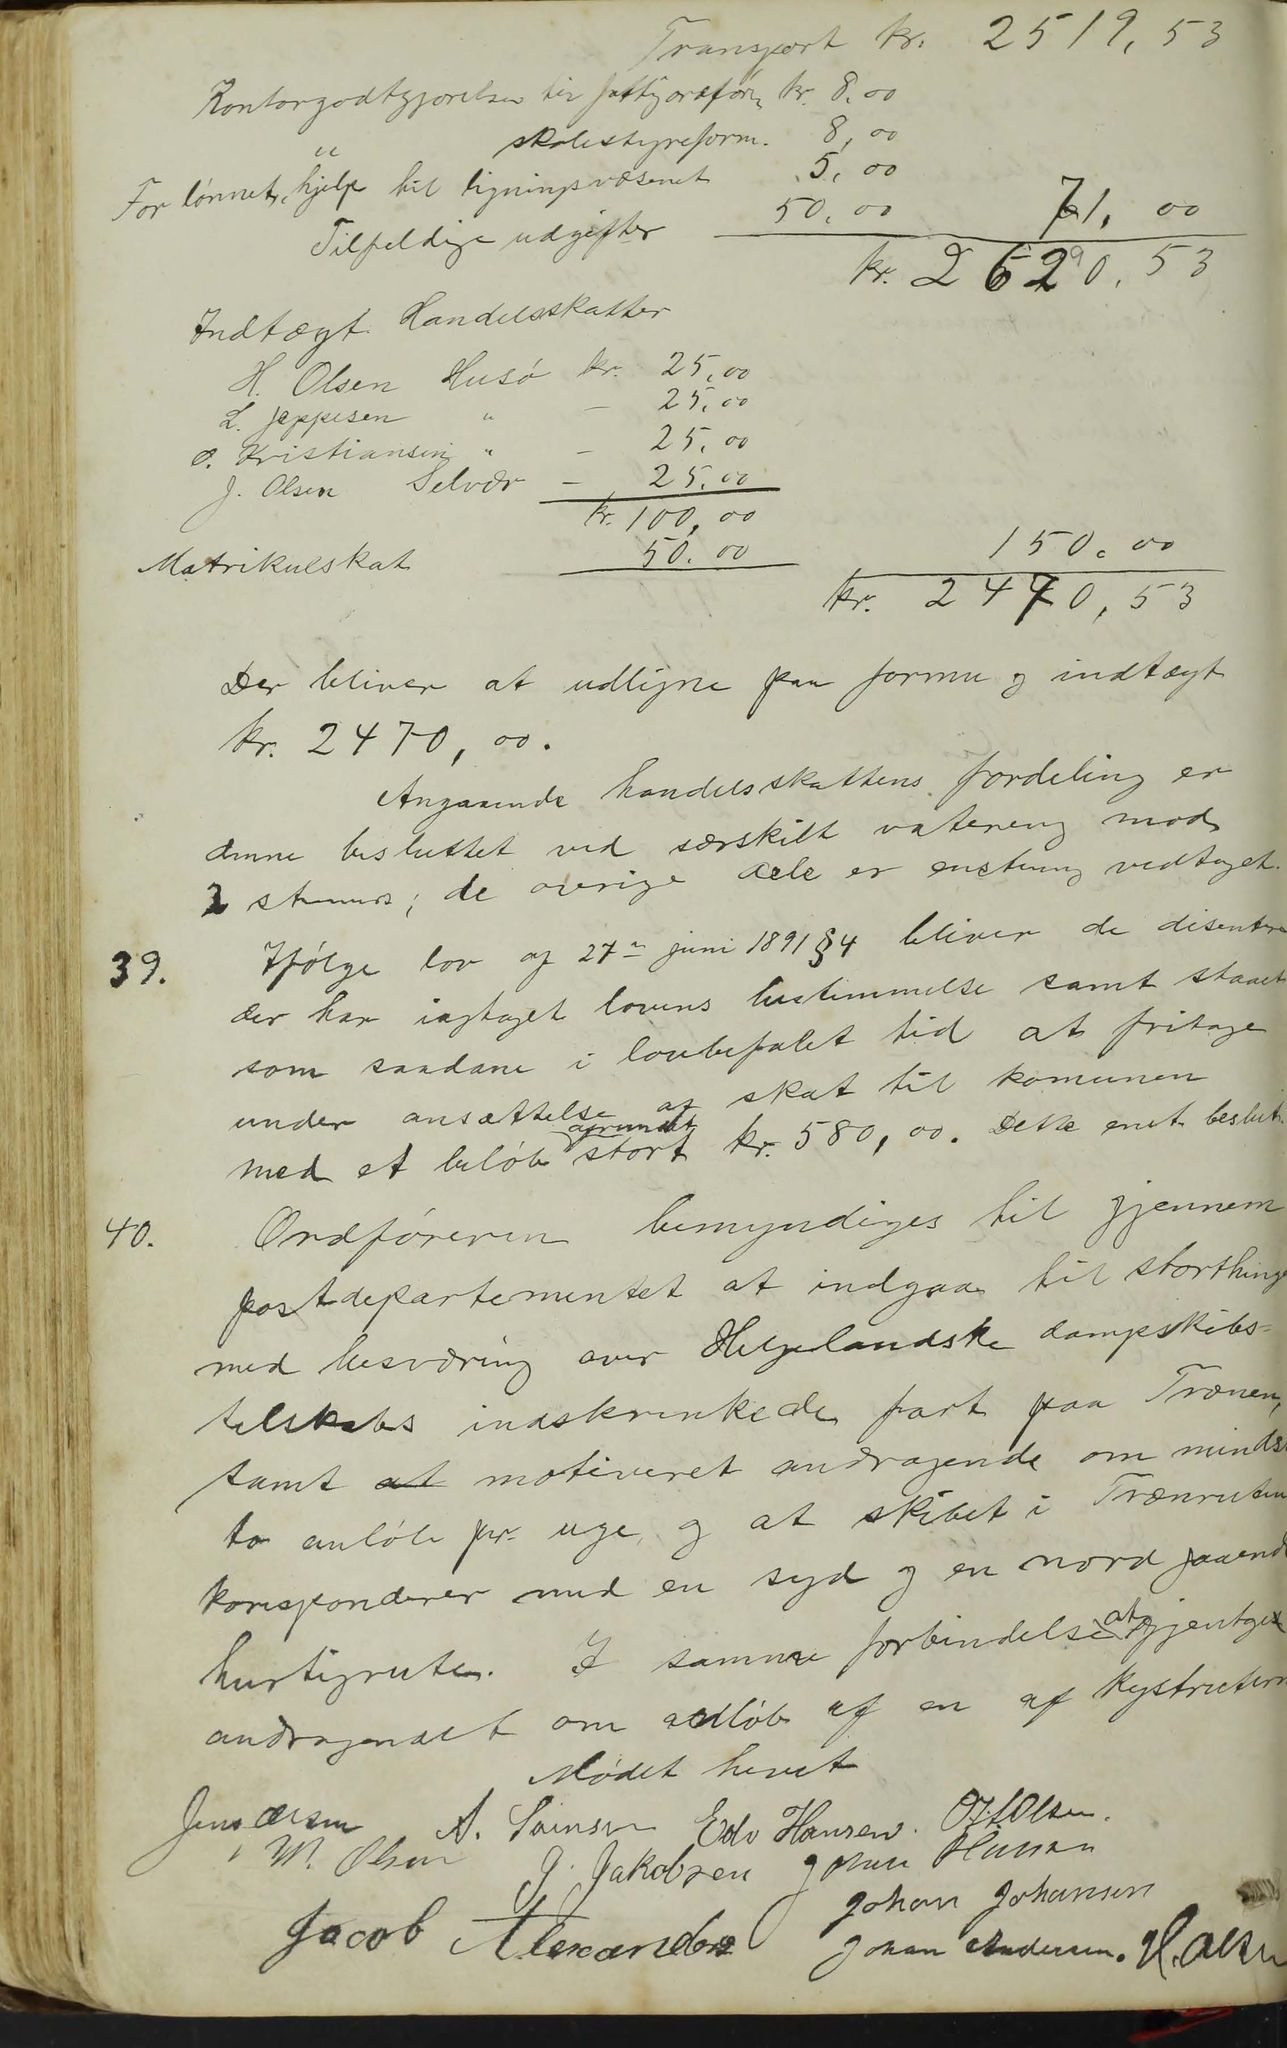 Transport kr. 2519,53
Kontorgodtgjørelse til fattigordfør. kr. 8.00
" skolestyreform. 8,00
For lønnet hjelp til ligningsvæsenet 5,00
Tilfeldige udgifter 50.00 71,00
kr. 2620,53
Indtægt. Handelsskatter
H. Olsen Husø kr. 25,00
L. Jeppesen " - 25,00
O. Kristiansen " - 25,00
J. Olsen Selvær - 25.00
kr. 100,00
Matrikulskat 50.00 150.00
kr. 2470,53
Der bliver at udligne paa formu og indtægt
kr. 2470,00.
Angaaende handelsskattens fordeling er
denne besluttet ved særskilt votering mod
2 stemmer; de øvrige dele er enstemig vedtaget.
39. Ifølge lov af 27de juni 1891 § 4 bliver de disentere
der har iagtaget lovens bestimmelse samt staaet
som saadane i lovbefalet tid at fritage
under ansættelse af skat til komunen
med et beløb afrundet stort kr. 580,00. Dette enst. beslut.
40. Ordføreren bemyndiges til gjennem
postdepartementet at indgaa til storthinge
med besværing over Helgelandske dampskibs-
selskabs indskrenkede fart paa Trænen,
samt at motiveret andragende om mindst
to anløb pr. uge, og at skibet i Trænruten
koresponderer med en syd og en nord gaaende
hurtigrute. I samme forbindelse at gjentage
andragendet om anløb af en af kystruterne
Mødet hevet
Jens Olsen A. Edv Hansen. O. Olsen.
M. Olsen J. Jakobsen Johan Hansen
Johan Johansen
Jacob Alexanders Johan Andersen. H. Olsen